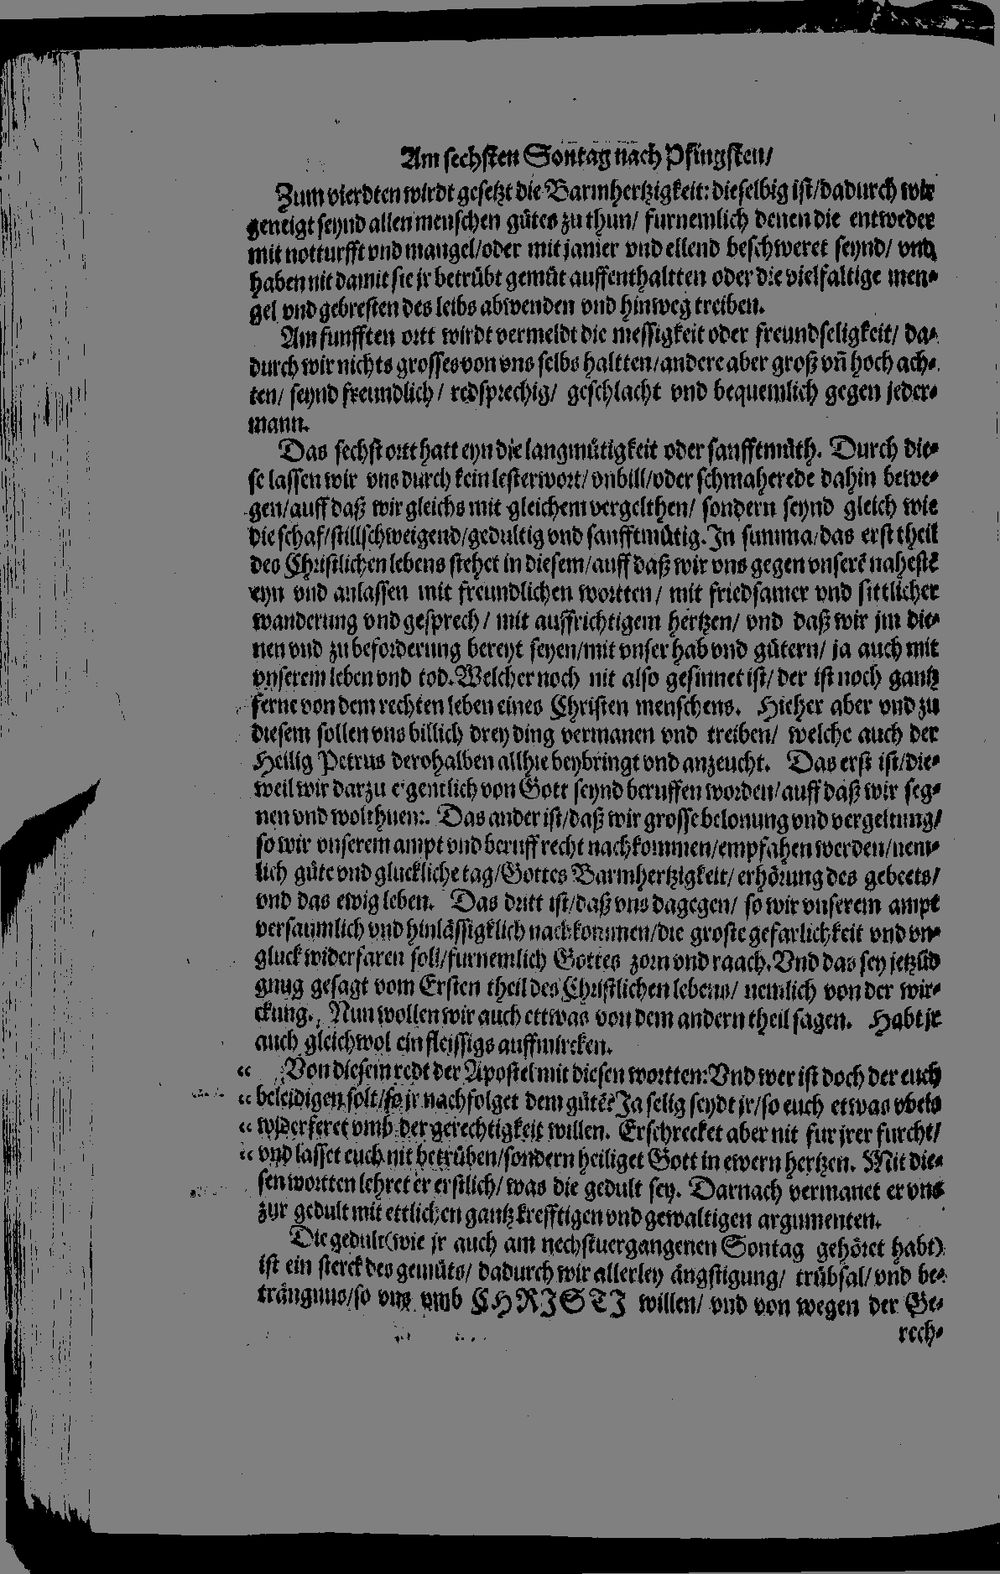 Am sechsten Sontag nach Pfingsten/
Zum vierdten wirdt gesetzt die Barmhertzigkeit: dieselbig ist/dadurch wir
geneigt seynd allen menschen gůtes zu thun/ furnemlich denen die entweder
mit notturfft vnd mangel/oder mit jamer vnd ellend beschweret seynd/ vnd
haben nit damit sie jr betrůbt gemůt auffenthaltten oder die vielfaltige men-
gel vnd gebresten des leibs abwenden vnd hinweg treiben.
Am funfften ortt wirdt vermeldt die messigkeit oder freundseligkeit/ da-
durch wir nichts grosses von vns selbs haltten/andere aber groß vñ hoch ach-
ten/ seynd freundlich/ redsprechig/ geschlacht vnd bequemlich gegen jeder-
mann.
Das sechst ortt hatt eyn die langmůtigkeit oder sanfftmůth. Durch die-
se lassen wir vns durch kein lesterwort/ vnbill/oder schmaherede dahin bewe-
gen/auff daß wir gleichs mit gleichem vergelthen/ sondern seynd gleich wie
die schaf/stillschweigend/gedultig vnd sanfftmůtig. In summa/das erst theil
des Christlichen lebens stehet in diesem/auff daß wir vns gegen vnserẽ nahestẽ
eyn vnd anlassen mit freundlichen wortten/ mit friedsamer vnd sittlicher
wanderung vnd gesprech/ mit auffrichtigem hertzen/ vnd daß wir jm die-
nen vnd zu beforderung bereyt seyen/mit vnser hab vnd gůtern/ ja auch mit
vnserem leben vnd tod. Welcher noch nit also gesinnet ist/ der ist noch gantz
ferne von dem rechten leben eines Christen menschens. Hieher aber vnd zu
diesem sollen vns billich drey ding vermanen vnd treiben/ welche auch der
Heilig Petrus derohalben allhie beybringt vnd anzeucht. Das erst ist/die-
weil wir darzu eigentlich von Gott seynd beruffen worden/auff daß wir seg-
nen vnd wolthuen. Das ander ist/daß wir grosse belonung vnd vergeltung/
so wir vnserem ampt vnd beruff recht nachkommen/empfahen werden/nem-
lich gůte vnd gluckliche tag/Gottes Barmhertzigkeit/ erhörung des gebeets/
vnd das ewig leben. Das dritt ist/daß vns dagegen/ so wir vnserem ampt
versaumlich vnd hinlässigklich nachkommen/die groste gefarlichkeit vnd vn-
gluck widerfaren soll/furnemlich Gottes zorn vnd raach. Vnd das sey jetzũd
gnug gesagt vom Ersten theil des Christlichen lebens/ nemlich von der wir-
ckung. Nun wollen wir auch ettwas von dem andern theil sagen. Habt jr
auch gleichwol ein fleissigs auffmircken.
Von diesem redt der Apostel mit diesen wortten: Vnd wer ist doch der euch
beleidigen solt/so jr nachfolget dem gůtẽ? Ja selig seydt jr/so euch etwas vbels
widerferet vmb der gerechtigkeit willen. Erschrecket aber nit fur jrer furcht/
vnd lasset euch nit betrůben/sondern heiliget Gott in ewern hertzen. Mit die-
sen wortten lehret er erstlich/ was die gedult sey. Darnach vermanet er vns
zur gedult mit ettlichen gantz krefftigen vnd gewaltigen argumenten.
Die gedult(wie jr auch am nechstuergangenen Sontag gehöret habt)
ist ein sterck des gemůts/ dadurch wir allerley ängstigung/ trůbsal/ vnd be-
trängnus/so vns vmb CHRISTI willen/ vnd von wegen der Ge-
rech-